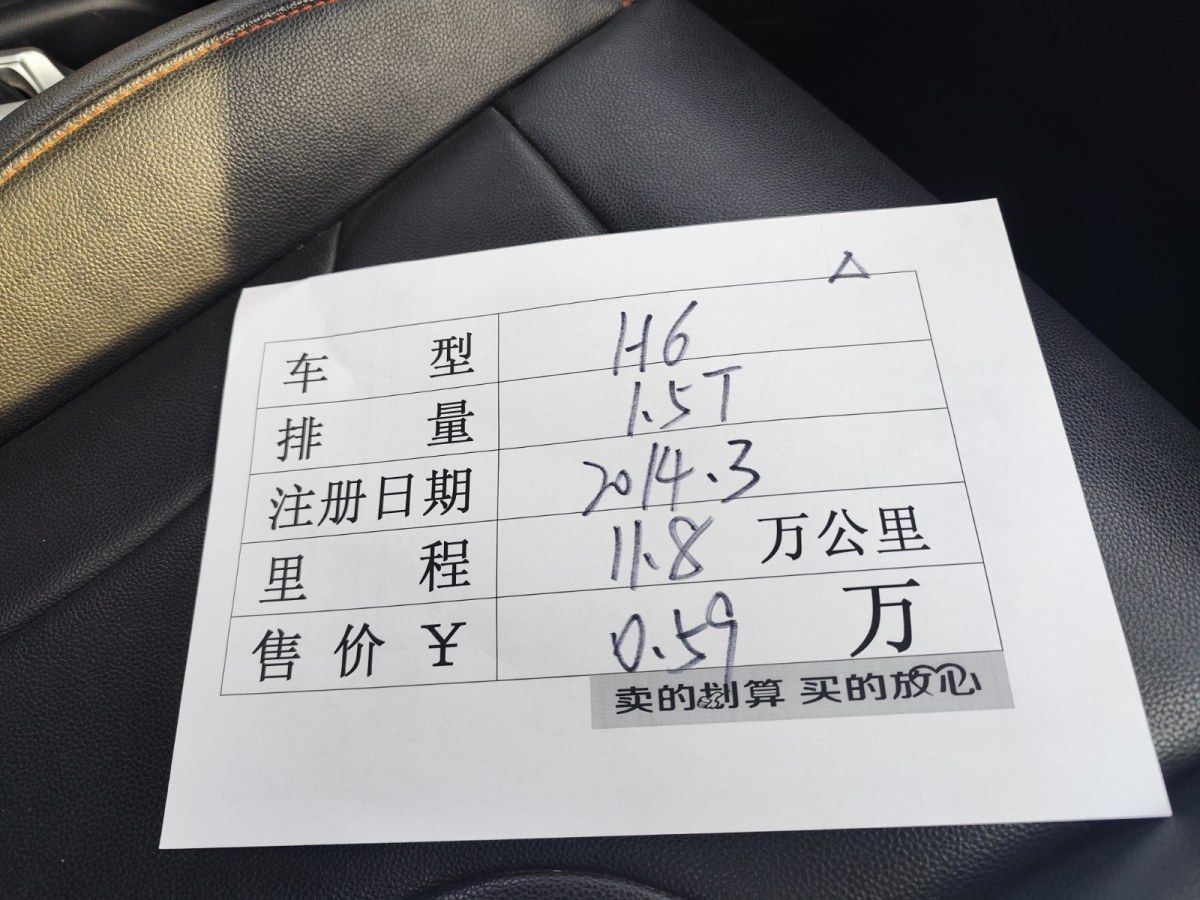 △
车型 H6
排量 1.5T
注册日期 2014.3
里程 11.8 万公里
售价¥ 0.59 万
卖的划算 买的放心